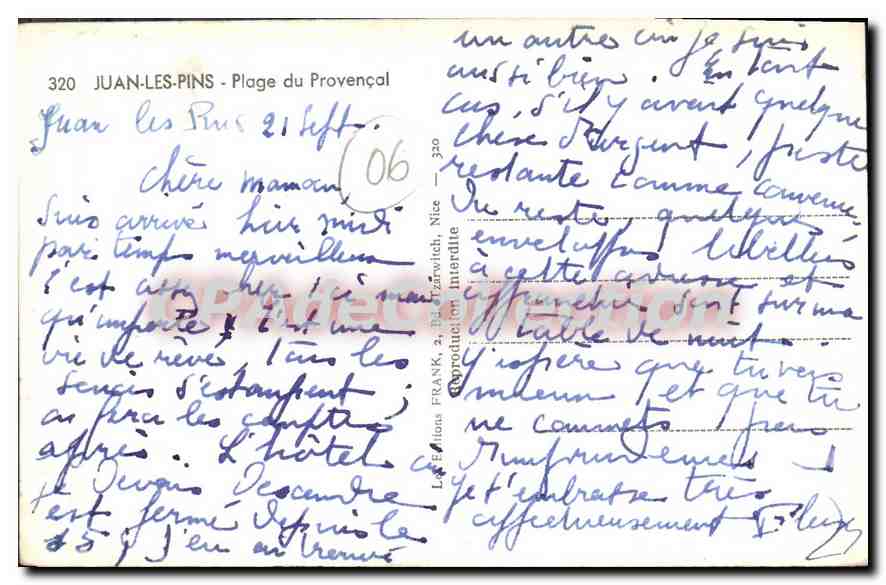 320 JUAN-LES-PINS - Plage du Provençal
Juan les Pins 21 Sept.
06
Chère maman
Suis arrivé hier midi
par temps merveilleux
C'est assez cher ici mais
qu'importe, c'est une
vie de rêve, tous les
soucis s'estompent ;
on fera les comptes
après. L'hôtel où
je devais descendre
est fermé depuis le
15, j'en ai trouvé
Les Editions FRANK, 2, Bd Tzarwitch, Nice — 320
Reproduction interdite
un autre où je suis
aussi bien. En tout
cas, s'il y avait quelque
chose d'urgent, poste
restante comme convenu.
Du reste, quelques
enveloppes libellées
à cette adresse et
affranchies sont sur ma
table de nuit.
J'espère que tu vas
mieux et que tu
ne commets pas
d'imprudences !
Je t'embrasse très
affectueusement
CPAdeCollection